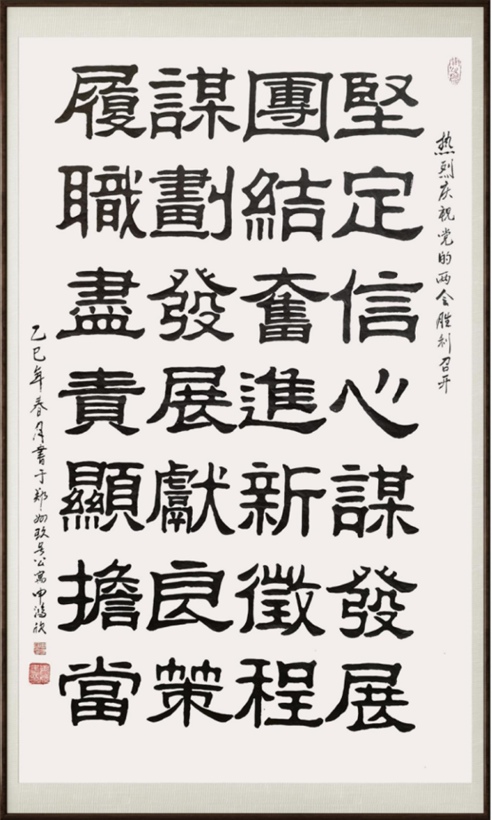 热烈庆祝党的两会胜利召开
堅定信心謀發展
團結奮進新徵程
謀劃發展獻良策
履職盡責顯擔當
乙巳年春月書于郑州